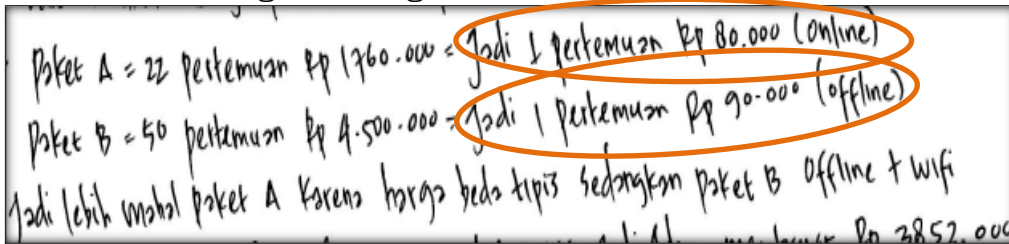 Paket A = 22 pertemuan Rp 1760.000 = Jadi 1 pertemuan Rp 80.000 (online)
Paket B = 50 pertemuan Rp 4.500.000 = Jadi 1 pertemuan Rp 90.000 (offline)
Jadi lebih mahal paket A karena harga beda tipis sedangkan paket B offline + wifi
Rp 3852.000